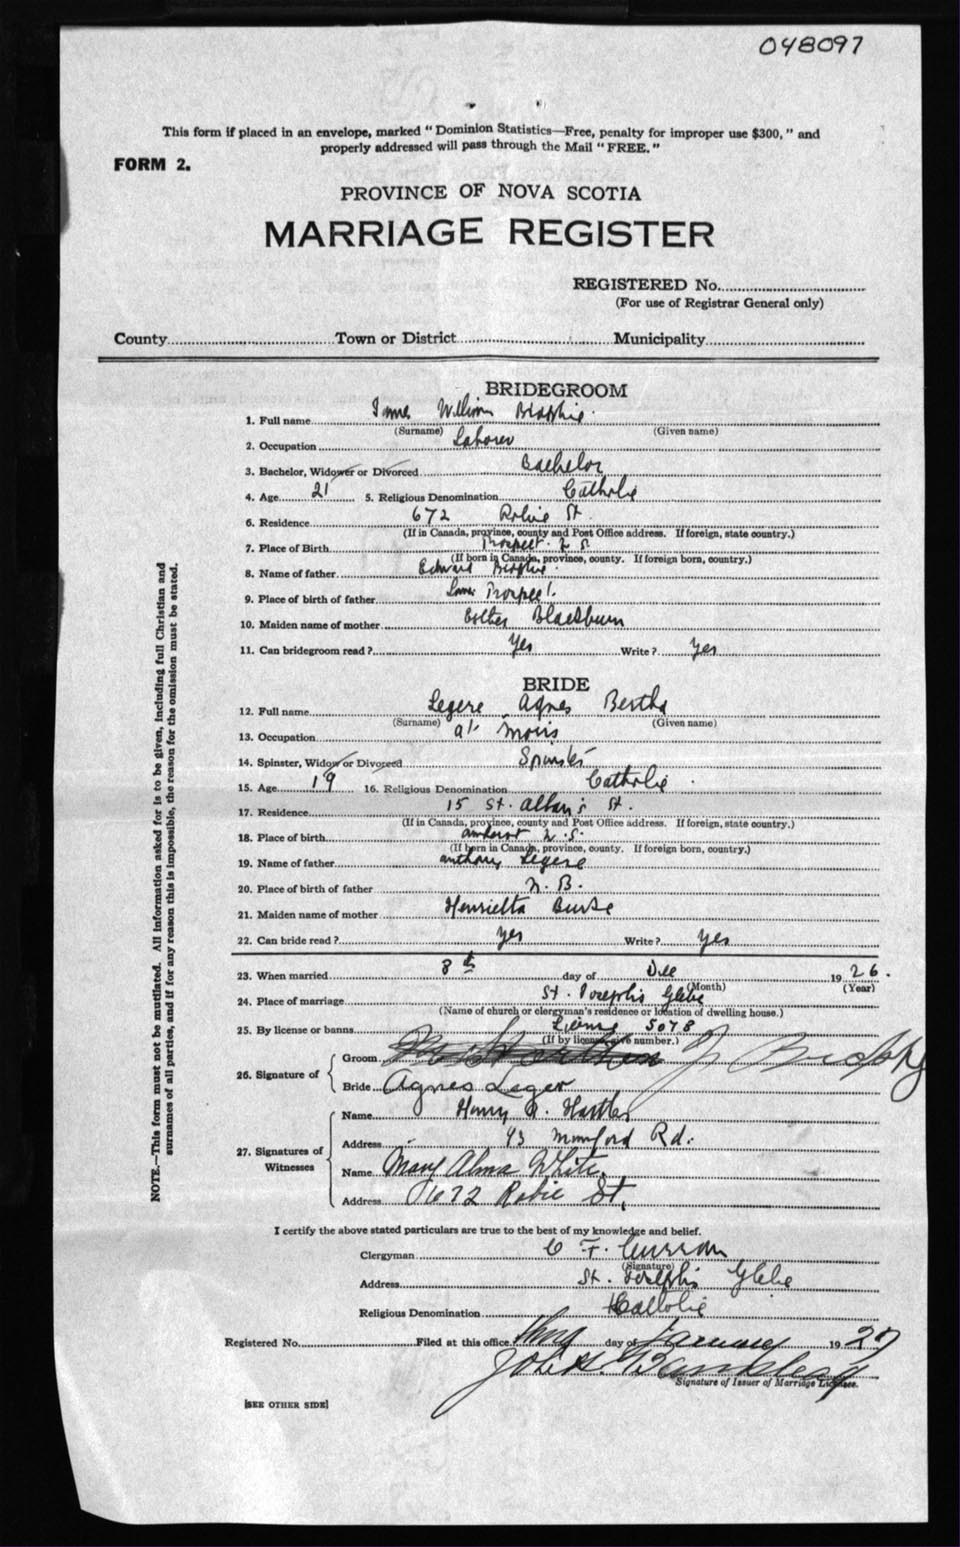 048097
This form if placed in an envelope, marked "Dominion Statistics—Free, penalty for improper use $300," and
properly addressed will pass through the Mail "FREE."
FORM 2.
PROVINCE OF NOVA SCOTIA
MARRIAGE REGISTER
REGISTERED No.
(For use of Registrar General only)
County Town or District Municipality
BRIDEGROOM
1. Full name James William
(Surname) (Given name)
2. Occupation Laborer
3. Bachelor, Widower or Divorced Bachelor
4. Age 21 5. Religious Denomination Catholic
6. Residence 672 Robie St.
(If in Canada, province, county and Post Office address. If foreign, state country.)
7. Place of Birth Prospect N.S.
(If born in Canada, province, county. If foreign born, country.)
8. Name of father Edward
9. Place of birth of father Prospect.
10. Maiden name of mother Esther Blackburn
11. Can bridegroom read? Yes Write? Yes
BRIDE
12. Full name Legere Agnes Bertha
(Surname) (Given name)
13. Occupation at Moirs
14. Spinster, Widow or Divorced Spinster
15. Age 19 16. Religious Denomination Catholic
17. Residence 15 St. Alban's St.
(If in Canada, province, county and Post Office address. If foreign, state country.)
18. Place of birth Amherst N.S.
(If born in Canada, province, county. If foreign born, country.)
19. Name of father Anthony Legere
20. Place of birth of father N.B.
21. Maiden name of mother Henrietta Burke
22. Can bride read? Yes Write? Yes
23. When married 8th day of Dec 1926.
(Month) (Year)
24. Place of marriage St. Joseph's Glebe
(Name of church or clergyman's residence or location of dwelling house.)
25. By license or banns License 5078
(If by license, give number.)
26. Signature of
Groom J
Bride Agnes Leger
27. Signatures of Witnesses
Name Henry
Address 93 Mumford Rd.
Name Mary Alma White.
Address 672 Robie St.
I certify the above stated particulars are true to the best of my knowledge and belief.
Clergyman C F. Curran
(Signature)
Address St. Joseph's Glebe
Religious Denomination Catholic
Registered No. Filed at this office day of January 1927
John
Signature of Issuer of Marriage Licenses.
[SEE OTHER SIDE]
NOTE.—This form must not be mutilated. All information asked for is to be given, including full Christian and
surnames of all parties, and if for any reason this is impossible, the reason for the omission must be stated.